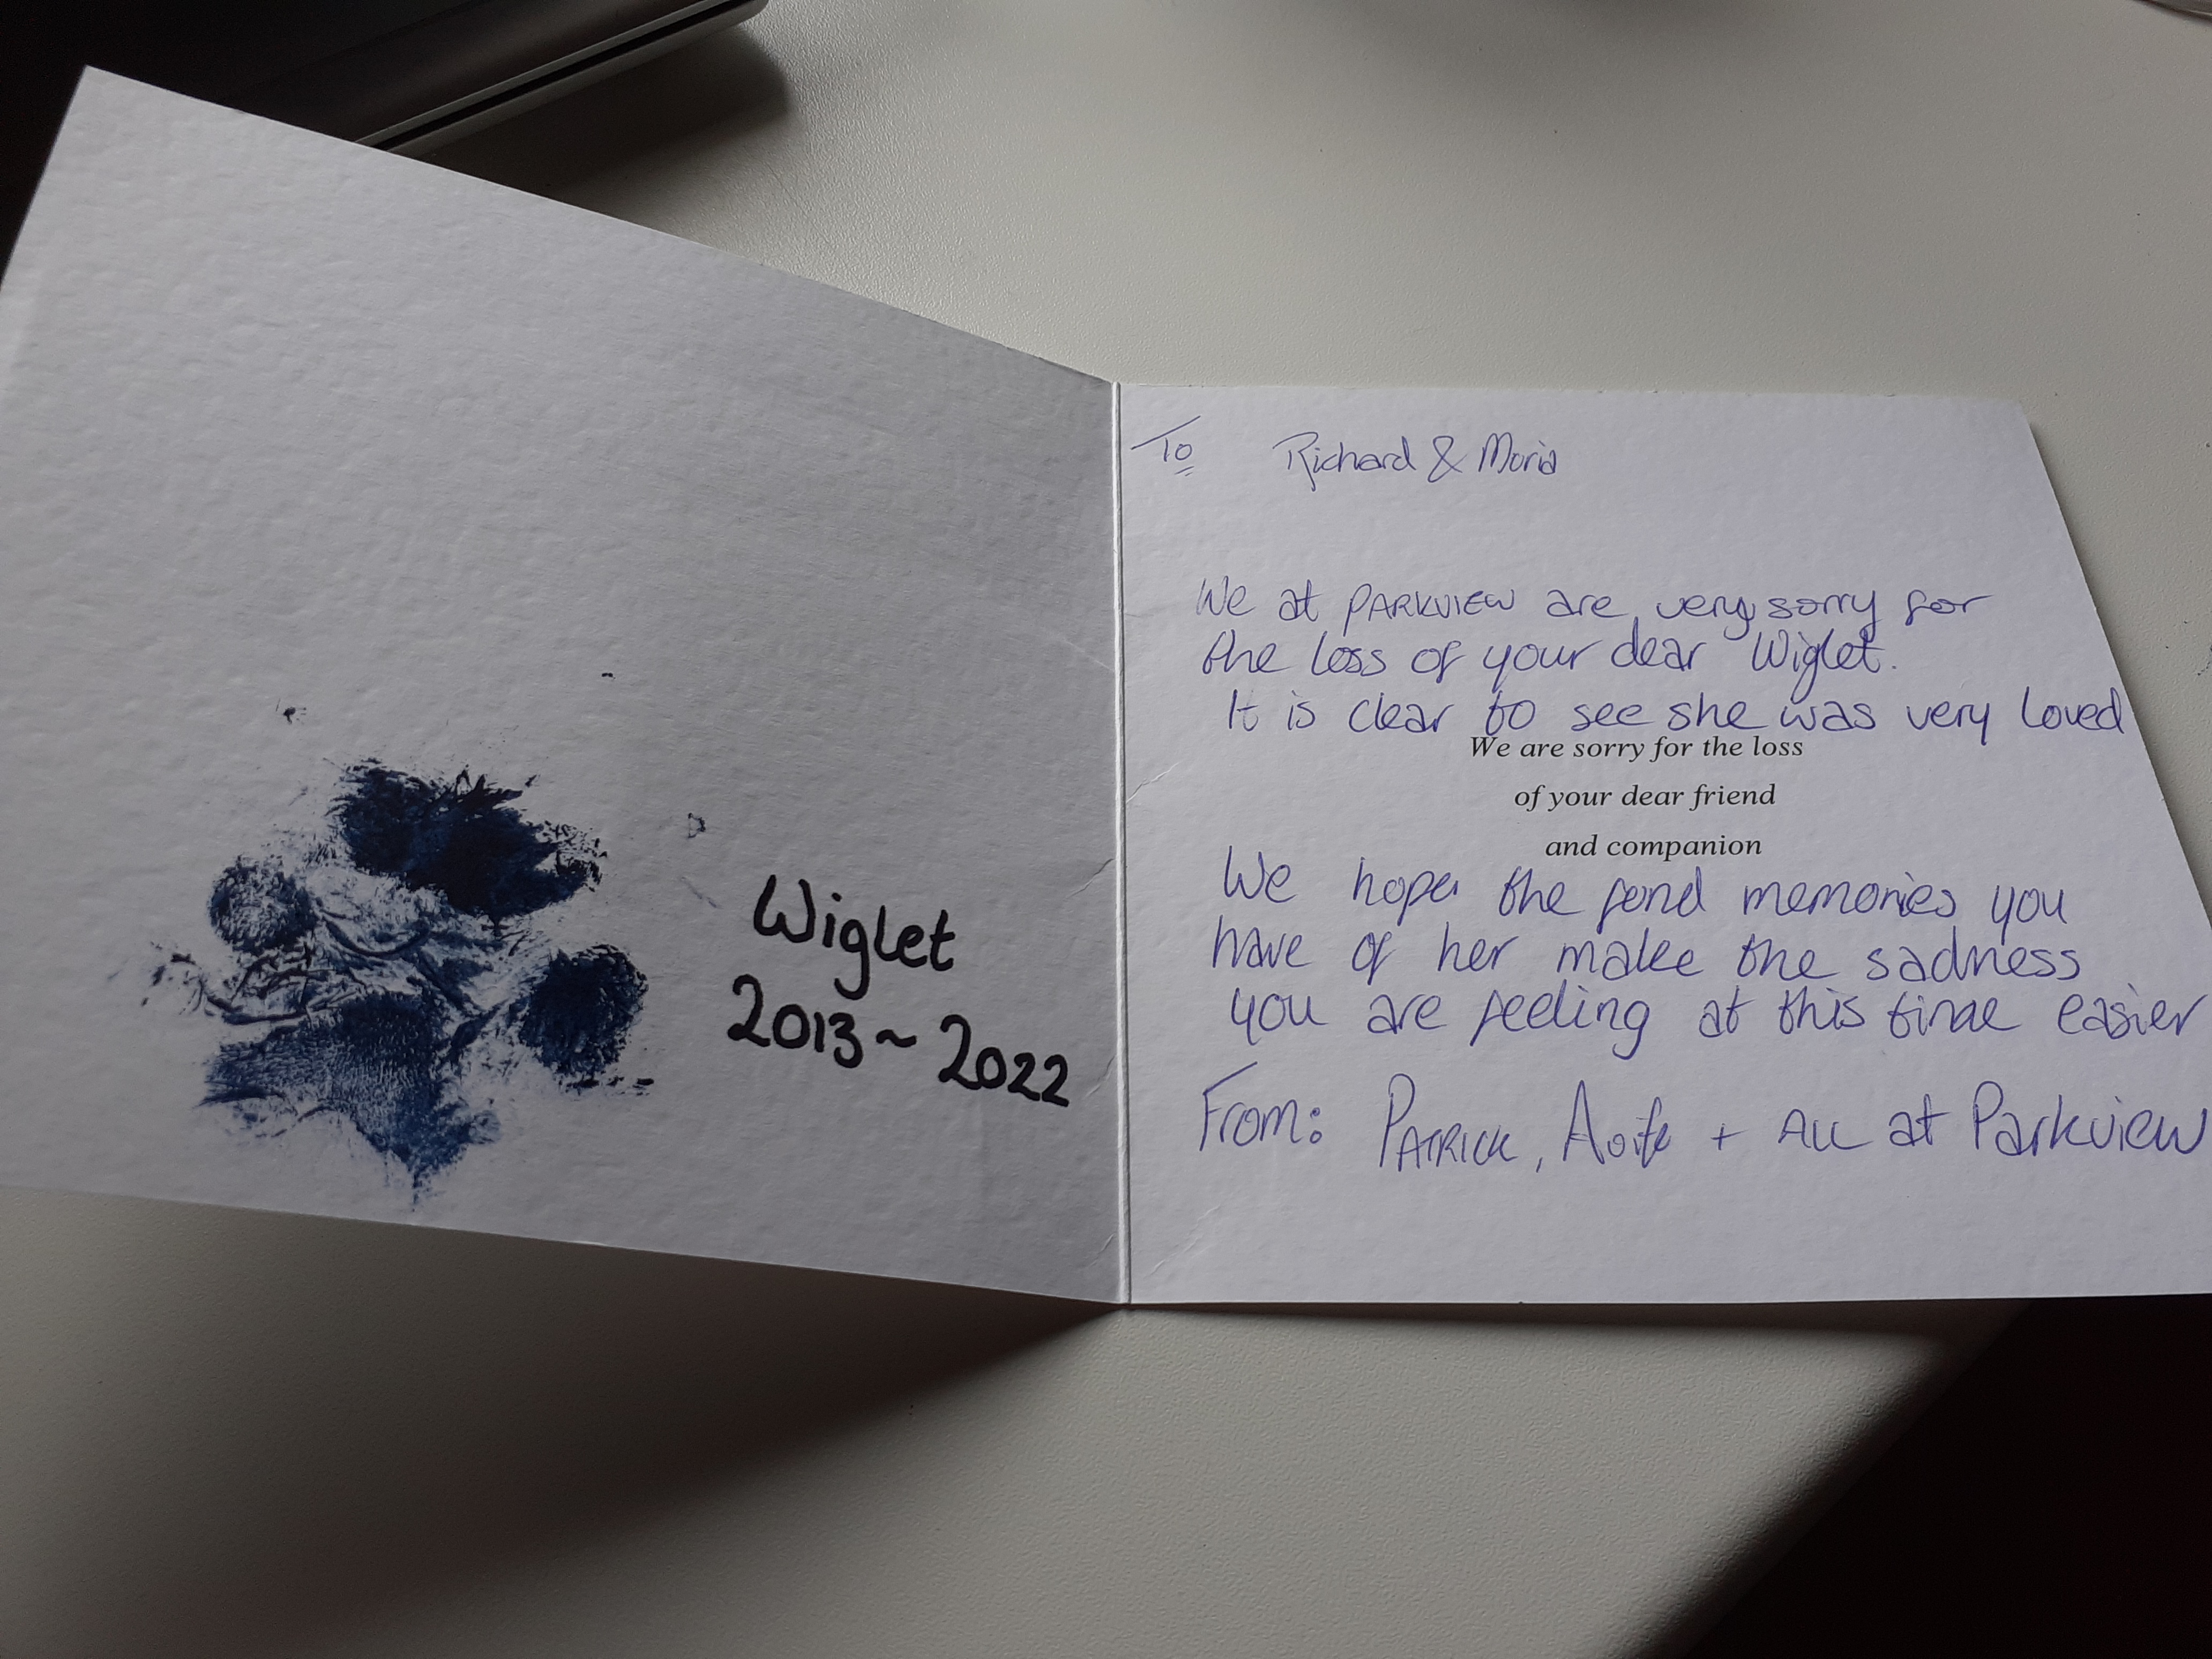 Wiglet
2013~2022
To Richard & Moria
We at PARKVIEW are very sorry for
the loss of your dear Wiglet.
It is clear to see she was very loved
We are sorry for the loss
of your dear friend
and companion
We hope the fond memories you
have of her make the sadness
you are feeling at this time easier
From: PATRICK, Aoife + ALL at Parkview